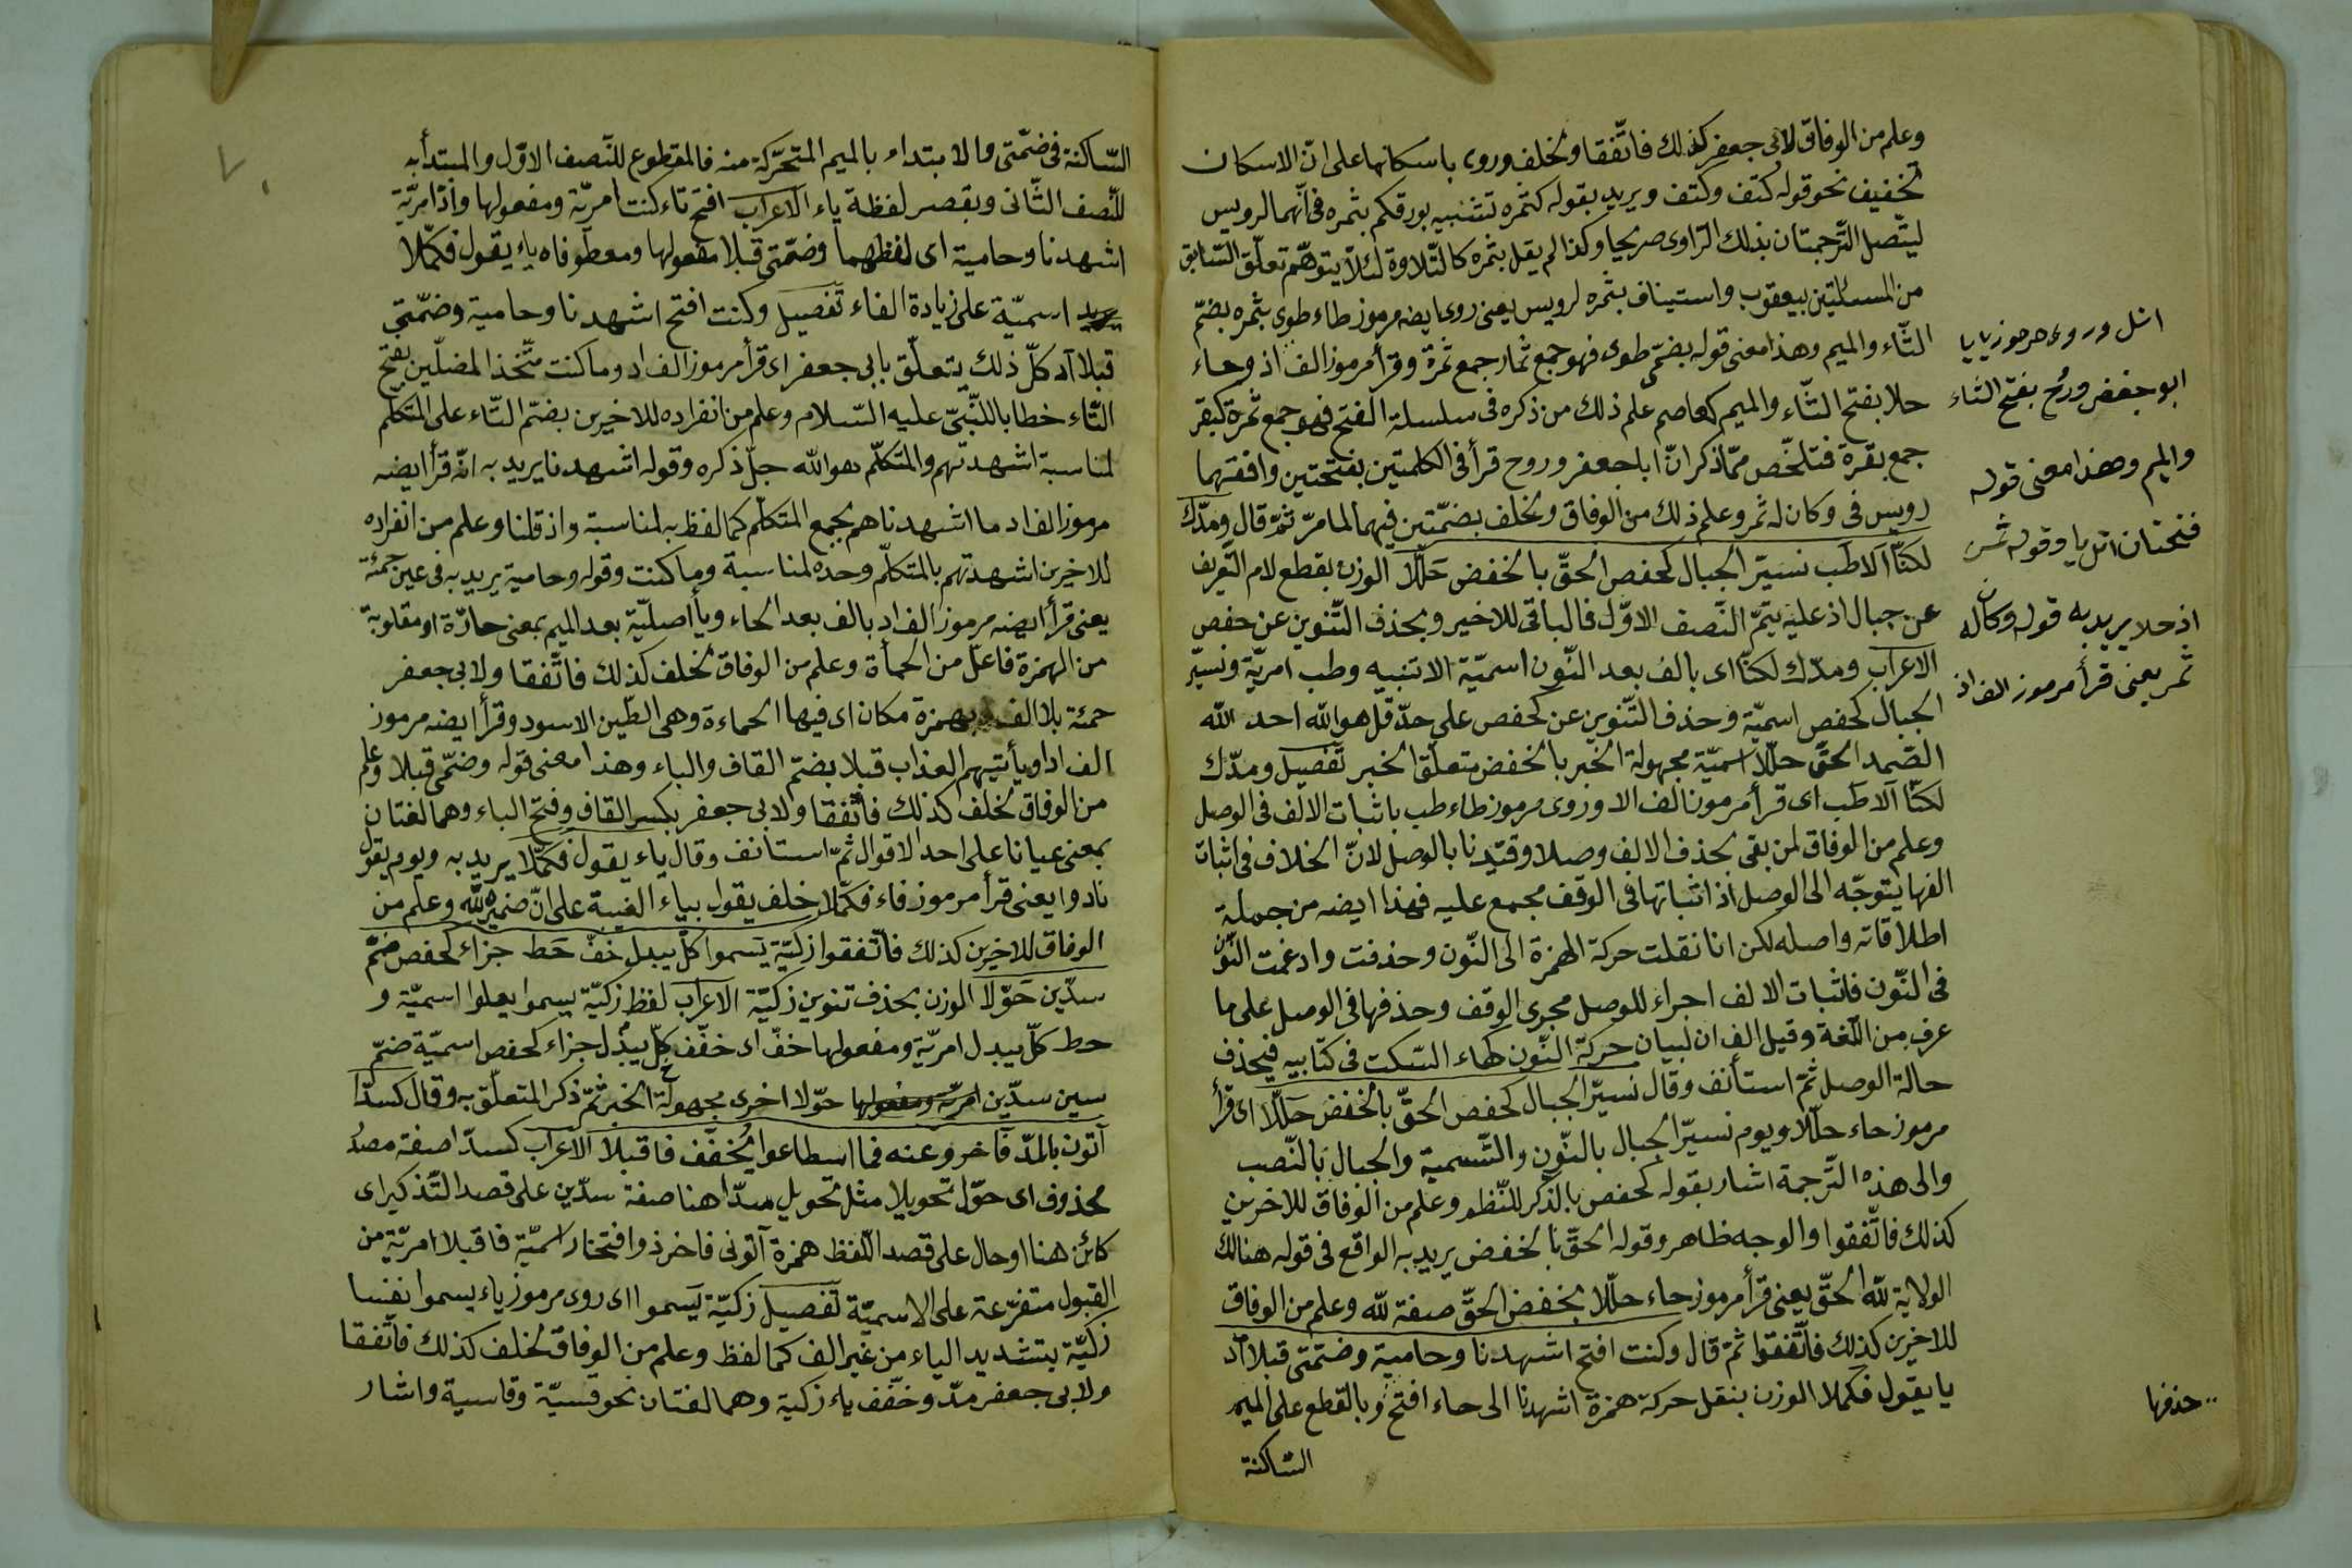 وعلم من الوفاق لابى جعفر كذلك فاتّفقا ولخلف وروى باسكانها على انّ الاسكان
تخفيف نحو قوله كتف وكتف ويريد بقوله كثمره تشبيه بورقكم بثمره فى انّهما لرويس
ليتّصل التّرجمتان بذلك الرّاوى صريحا وكذا لم يقل بثمره كالتّلاوة لئلاّ يتوهّم تعلّق السّابق
من المسئلتين بيعقوب واستيناف بثمره لرويس يعنى روى ايضه مرموز طاء طوى بثمره بضمّ
الثّاء والميم وهذا معنى قوله بضمّى طوى فهو جمع ثمار جمع ثمرة وقرأ مرموز الف اذ وحاء
حلا بفتح الثّاء والميم كعاصم علم ذلك من ذكره فى سلسلة الفتح فهو جمع ثمرة كبقر
جمع بقرة فتلخّص ممّا ذكر انّ ابا جعفر وروح قرأ فى الكلمتين بفتحتين وافقهما
رويس فى وكان له ثمر وعلم ذلك من الوفاق ولخلف بضمّتين فيهما لما مرّ ثمّ قال ومدّك
لكنّا الا طب نسيّر الجبال كحفص الحقّ بالخفض حلّلا الوزن بقطع لام التّعريف
عن جبال اذ عليه يتمّ النّصف الاوّل فالباقى للاخير وبحذف التّنوين عن حفص
الاعراب ومدّك لكنّا اى بالف بعد النّون اسميّة الا تنبيه وطب امريّة ونسيّر
الجبال كحفص اسميّة وحذف التّنوين عن كحفص على حدّ قل هو الله احد الله
الصّمد الحقّ حلّلا اسميّة مجهولة الخبر بالخفض متعلّق الخبر تفصيل ومدّك
لكنّا الا طب اى قرأ مرموز الف الا وروى مرموز طاء طب باثبات الالف فى الوصل
وعلم من الوفاق لمن بقى بحذف الالف وصلا وقيّدنا بالوصل لانّ الخلاف فى اثبات
الفها يتوجّه الى الوصل اذ اثباتها فى الوقف مجمع عليه فهذا ايضه من جملة
اطلاقاته واصله لكن انا نقلت حركة الهمزة الى النّون وحذفت وادغمت النّون
فى النّون فاثبات الالف اجراء للوصل مجرى الوقف وحذفها فى الوصل على ما
عرف من اللّغة وقيل الف ان لبيان حركة النّون كهاء السّكت فى كتابيه فيحذف
حالة الوصل ثمّ استأنف وقال نسيّر الجبال كحفص الحقّ بالخفض حلّلا اى قرأ
مرموز حاء حلّلا ويوم نسيّر الجبال بالنّون والتّسمية والجبال بالنّصب
والى هذه التّرجمة اشار بقوله كحفص بالذّكر للنّظم وعلم من الوفاق للاخرين
كذلك فاتّفقوا والوجه ظاهر وقوله الحقّ بالخفض يريد به الواقع فى قوله هنالك
الولاية للّه الحقّ يعنى قرأ مرموز حاء حلّلا بخفض الحقّ صفة للّه وعلم من الوفاق
للاخرين كذلك فاتّفقوا ثمّ قال وكنت افتح اشهدنا وحامية وضمّتى قبلا اد
يا يقول فكملا الوزن بنقل حركة همزة اشهدنا الى حاء افتح وبالقطع على الميم
السّاكنة
اتل وروى مرموز يا يا
ابو جعفر وروح بفتح الثاء
والميم وهذا معنى قوله
فتحتان اتل يا وقوله ثمر
اذ حلا يريد به قوله وكان له
ثمر يعنى قرأ مرموز الف اذ
حذفها
السّاكنة فى ضمّتى والابتداء بالميم المتحرّكة منه فالمقطوع للنّصف الاوّل والمبتدأ به
للنّصف الثّانى وبقصر لفظة ياء الاعراب افتح تاء كنت امريّة ومفعولها واد امريّة
اشهدنا وحامية اى لفظهما وضمّتى قبلا مفعولها ومعطوفاه ياء يقول فكمّلا
اسميّة على زيادة الفاء تفصيل وكنت افتح اشهدنا وحامية وضمّتى
قبلا اد كلّ ذلك يتعلّق بابى جعفر اى قرأ مرموز الف اد وما كنت متّخذ المضلّين بفتح
التّاء خطابا للنّبىّ عليه السّلام وعلم من انفراده للاخيرين بضمّ التّاء على المتكلم
لمناسبة اشهدتهم والمتكلّم هو الله جلّ ذكره وقوله اشهدنا يريد به انّه قرأ ايضه
مرموز الف اد ما اشهدناهم بجمع المتكلّم كما لفظ به لمناسبة واذ قلنا وعلم من انفراده
للاخيرين اشهدتهم بالمتكلّم وحده لمناسبة وما كنت وقوله وحامية يريد به فى عين حمئة
يعنى قرأ ايضه مرموز الف اد بالف بعد الحاء وياء اصليّة بعد الميم بمعنى حارّة او مقلوبة
من الهمزة فاعل من الحمأة وعلم من الوفاق لخلف كذلك فاتّفقا ولابى جعفر
حمئة بلا الف وبهمزة مكان اى فيها الحماءة وهى الطّين الاسود وقرأ ايضه مرموز
الف اد او يأتيهم العذاب قبلا بضمّ القاف والباء وهذا معنى قوله وضمّتى قبلا وعلم
من الوفاق لخلف كذلك فاتّفقا ولابى جعفر بكسر القاف وفتح الباء وهما لغتان
بمعنى عيانا على احد الاقوال ثمّ استانف وقال ياء يقول فكمّلا يريد به ويوم يقول
نادوا يعنى قرأ مرموز فاء فكمّلا خلف يقول بياء الغيبة على انّ ضميره للّه وعلم من
الوفاق للاخيرين كذلك فاتّفقوا زكيّة يسموا كلّ يبدل خفّ حط جزاء كحفص ضمّ
سدّين حوّلا الوزن بحذف تنوين زكيّة الاعراب لفظ زكيّة يسموا يعلوا اسميّة و
حط كلّ يبدل امريّة ومفعولها خفّ اى خفّف كلّ يبدل جزاء كحفص اسميّة ضمّ
سين سدّين حوّلا اخرى مجهولة الخبر ثمّ ذكر المتعلّق به وقال كسدّا
آتون بالمدّ فاخر وعنه فما اسطاعوا يخفّف فاقبلا الاعراب كسدّا صفة مصدر
محذوف اى حوّل تحويلا مثل تحويل سدّا هنا صفة سدّين على قصد التّذكير اى
كائن هنا او حال على قصد اللّفظ همزة آتونى فاخر ذو افتخار اسميّة فاقبلا امريّة من
القبول متفرّعة على الاسميّة تفصيل زكيّة يسموا اى روى مرموز ياء يسموا نفسا
زكيّة بتشديد الياء من غير الف كما لفظ وعلم من الوفاق لخلف كذلك فاتّفقا
ولابى جعفر مدّ وخفّف ياء زكية وهما لغتان نحو قسيّة وقاسية واشار